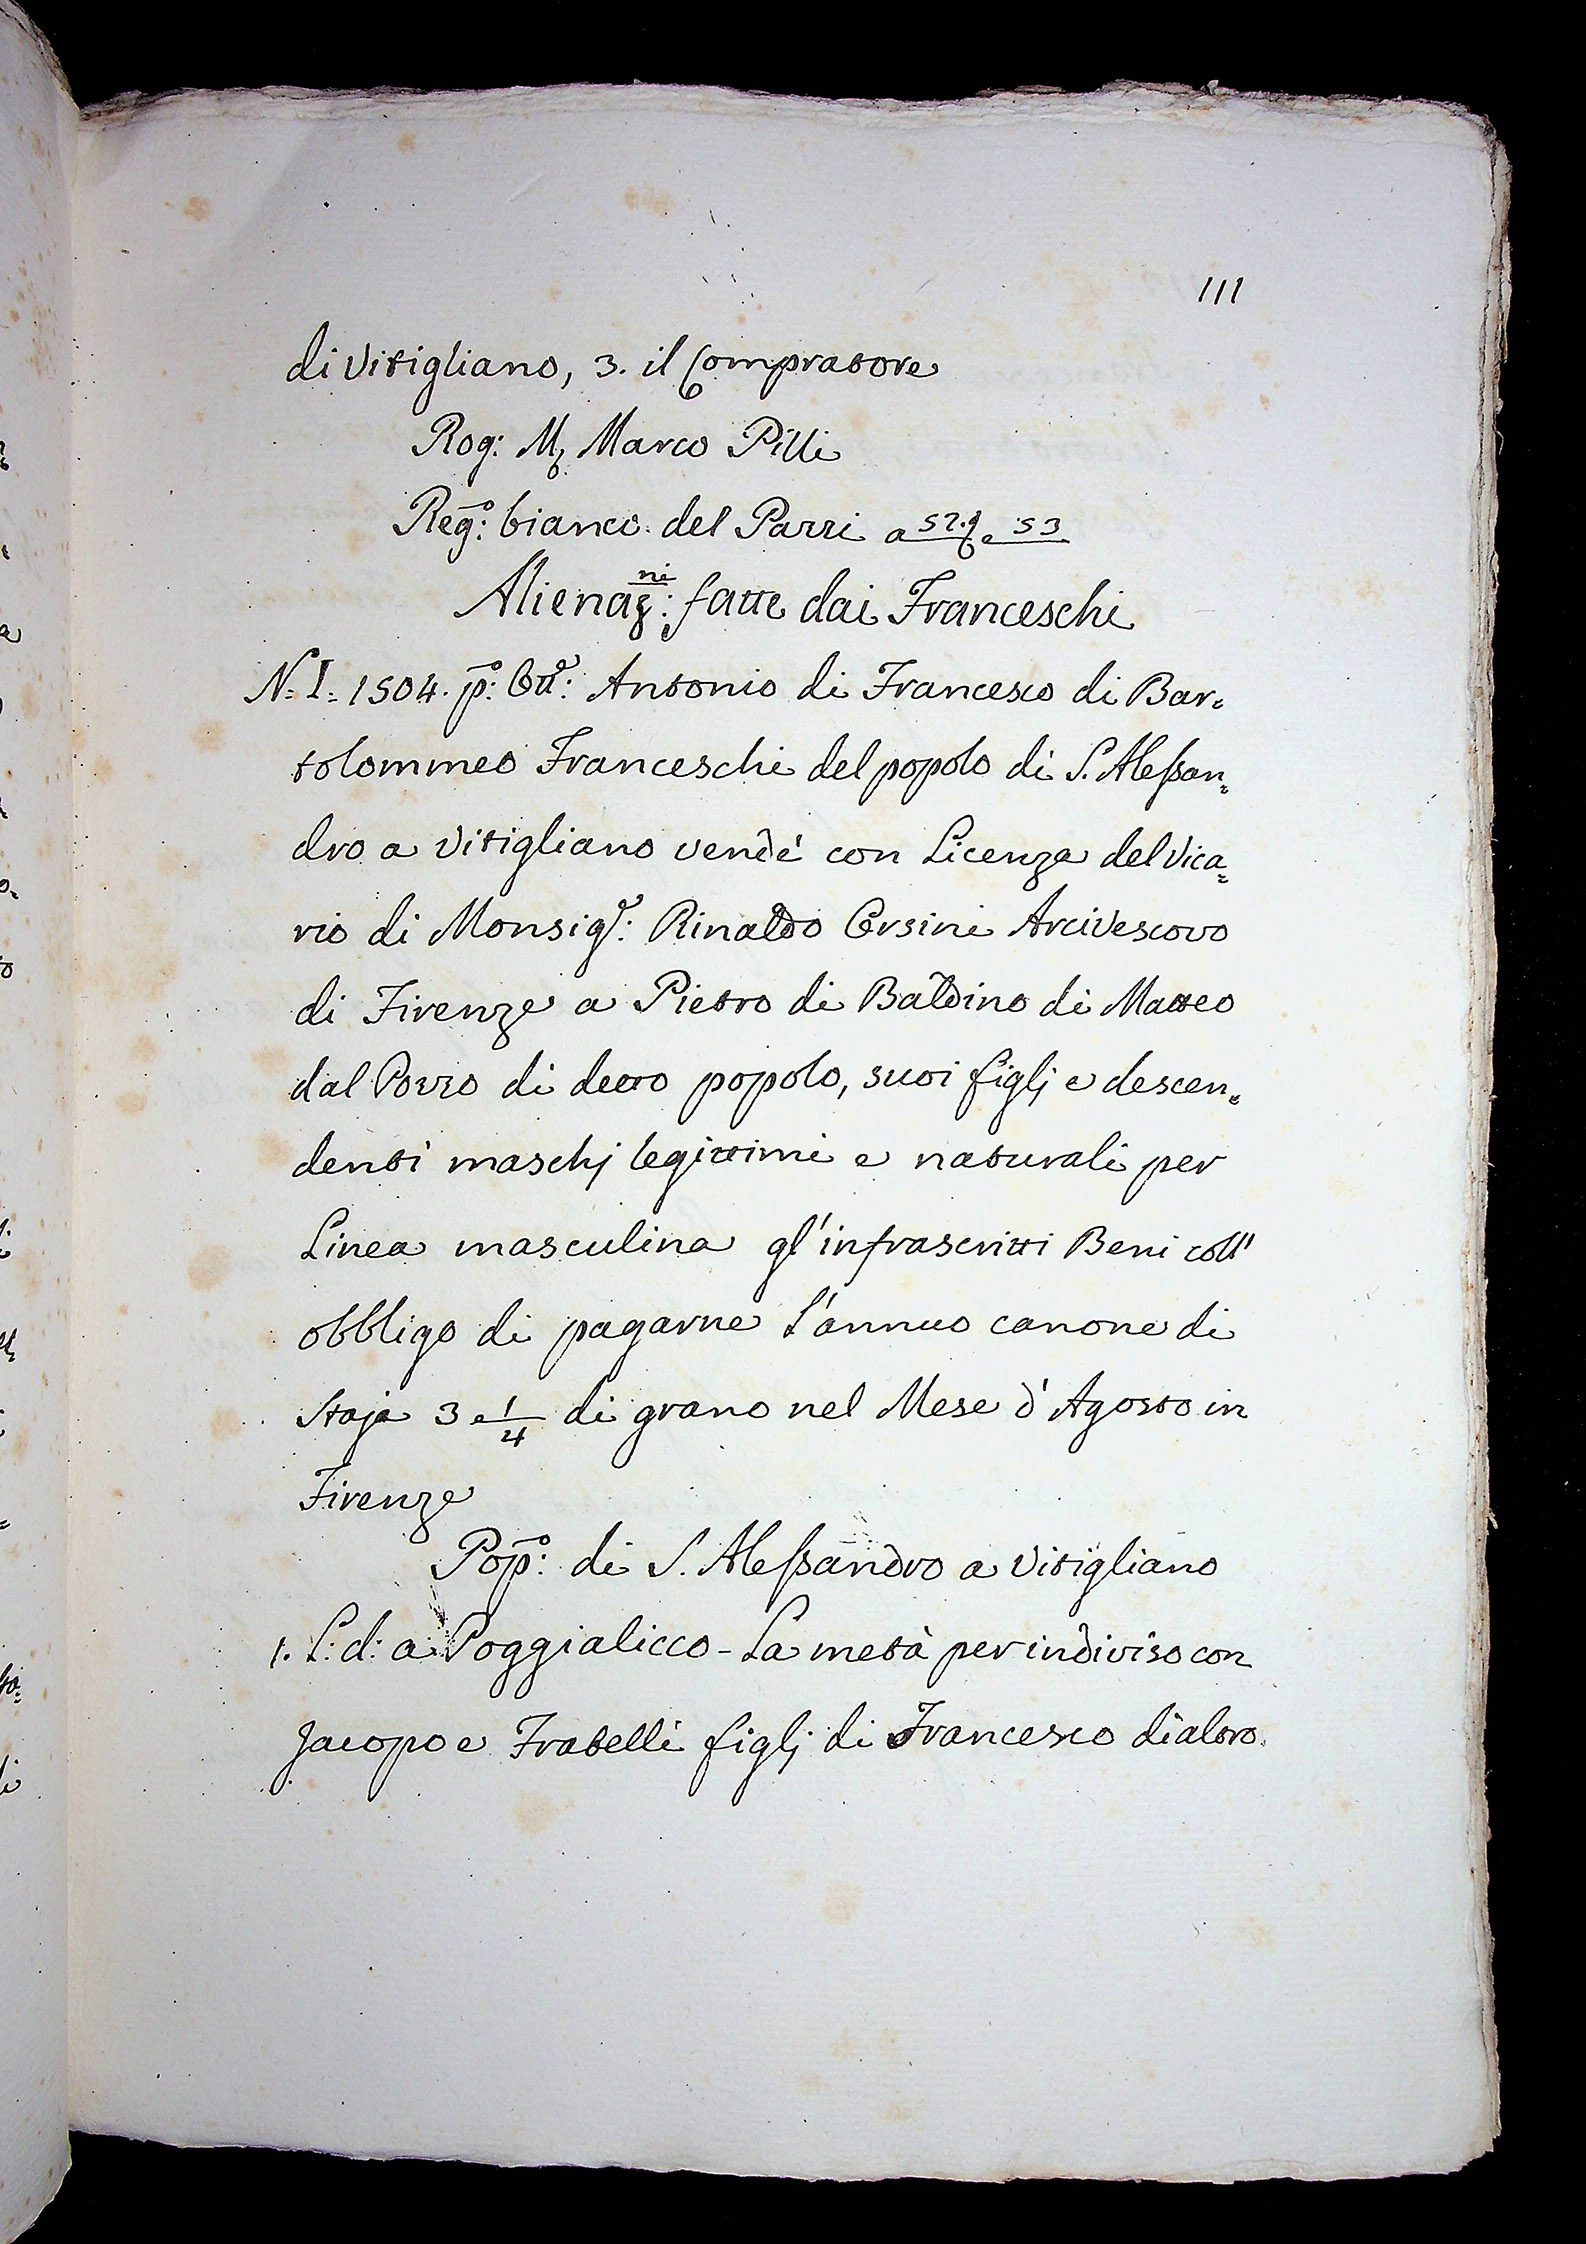 111
di Vitigliano, 3. il Compratore
Rog: M, Marco Pilli
Reg.o: bianco del Pazzi a 52. e 53
Alienaz.ni: fatte dai Franceschi
N. I. 1504. p.o: Ott.e: Antonio di Francesco di Bar=
tolommeo Franceschi del popolo di S. Alessan=
dro a Vitigliano vendé con Licenza del Vica=
rio di Monsig.r: Rinaldo Orsini Arcivescovo
di Firenze a Pietro di Baldino di Matteo
dal Pozzo di detto popolo, suoi figlj e descen=
denti maschj legittimi e naturali per
Linea masculina gl'infrascritti Beni coll'
obbligo di pagarne l'annuo canone di
Staja 3 e 1/4 di grano nel Mese d'Agosto in
Firenze
Pop.o: di S. Alessandro a Vitigliano
1. L: d: a Poggialicco - La metà per indiviso con
Jacopo e Fratelli figlj di Francesco di altro